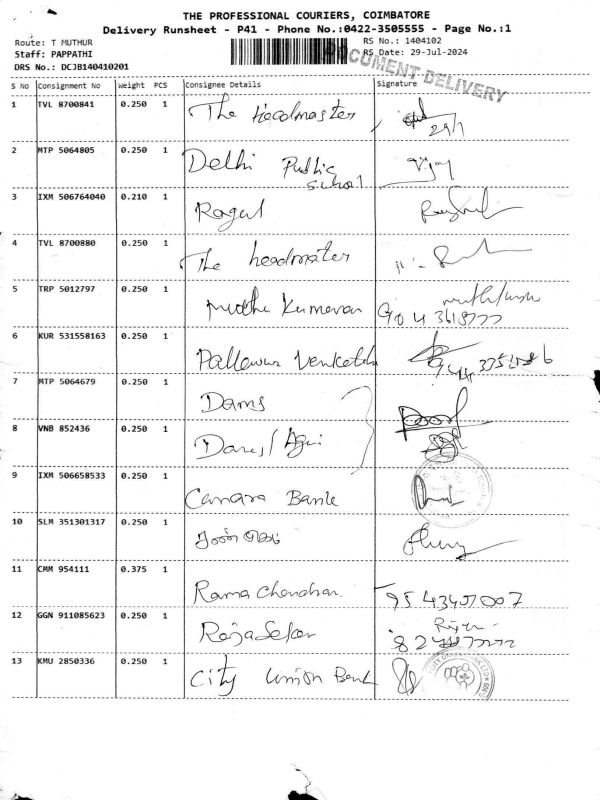 THE PROFESSIONAL COURIERS, COIMBATORE
Delivery Runsheet - P41 - Phone No.:0422-3505555 - Page No.:1
Route: T MUTHUR
RS No.: 1404102
Staff: PAPPATHI
RS Date: 29-Jul-2024
DRS No.: DCJB140410201
DOCUMENT DELIVERY
S No Consignment No Weight PCS Consignee Details Signature
1 TVL 8700841 0.250 1 The Headmaster 29/7
2 MTP 5064805 0.250 1 Delhi Public
School Vijay
3 IXM 506764040 0.210 1 Ragul
4 TVL 8700880 0.250 1 The headmaster
5 TRP 5012797 0.250 1 Muthu Kumaran
6 KUR 531558163 0.250 1
7 MTP 5064679 0.250 1 Dams
8 VNB 852436 0.250 1
9 IXM 506658533 0.250 1 Canara Bank
10 SLM 351301317 0.250 1
11 CMM 954111 0.375 1 Rama Chendran
12 GGN 911085623 0.250 1 RajaSekar
13 KMU 2850336 0.250 1 City Union Bank